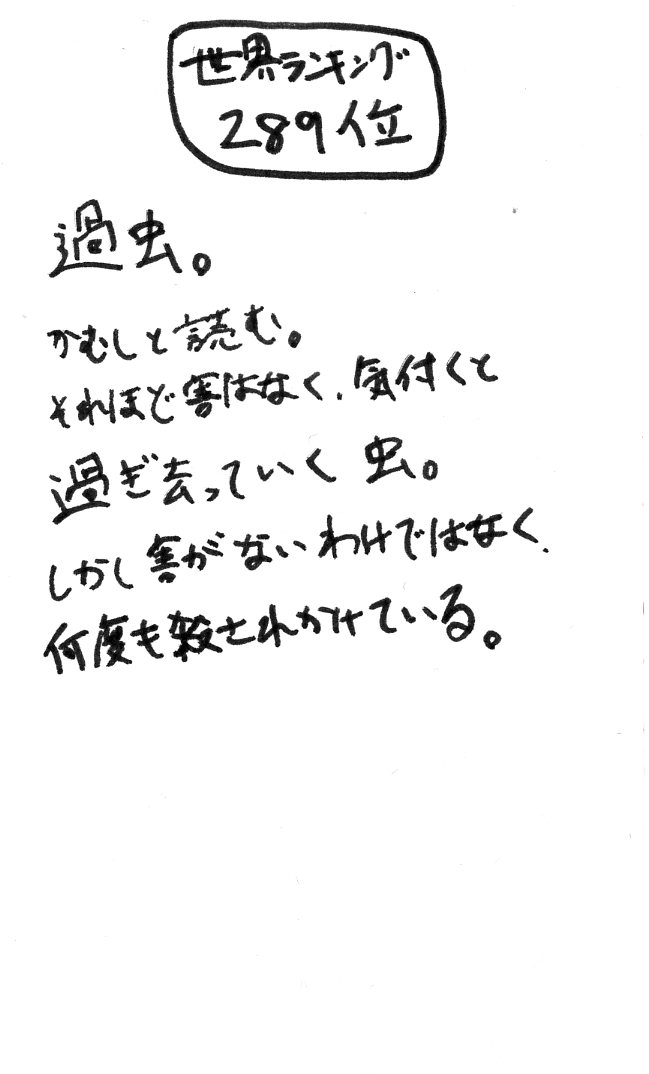 世界ランキング
289位
過虫。
かむしと読む。
それほど害はなく、気付くと
過ぎ去っていく虫。
しかし害がないわけではなく、
何度も殺されかけている。